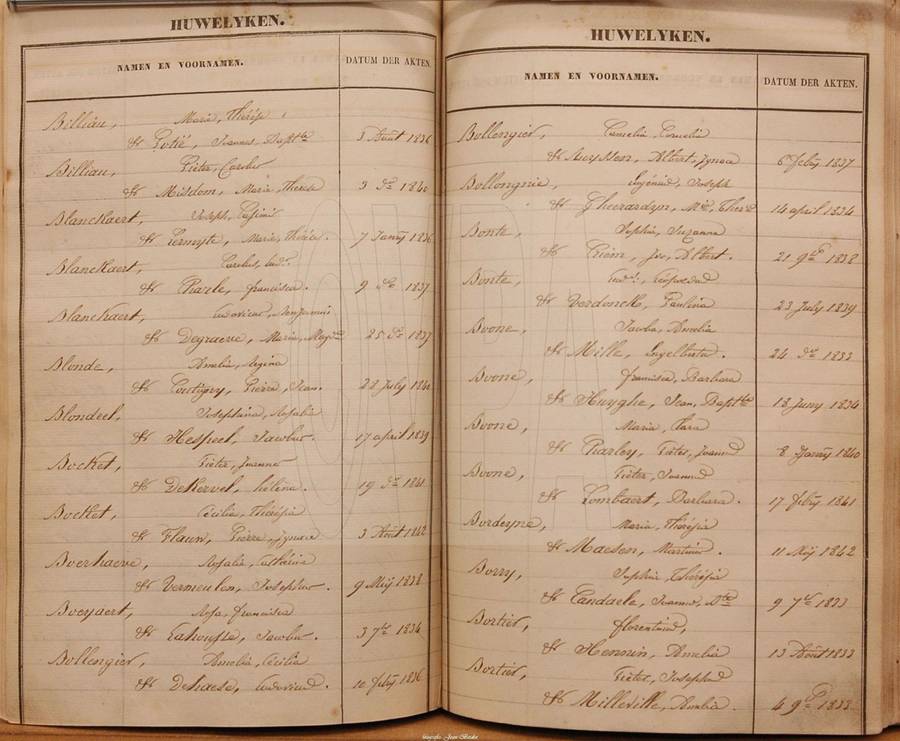 HUWELYKEN.
NAMEN EN VOORNAMEN. DATUM DER AKTEN.
Billiau, Marie, Thérèse
& Potié, Joannes, Baptte 3 Août 1836
Billiau, Pieter, Carolus
& Misdom, Marie Therese 3 do 1840
Blanckaert, Joseph,
& Lermyte, Marie, Thérèse. 7 Janry 1836
Blanckaert, Carolus, Ludc
& Charle, francisca. 9 do 1837
Blanckaert, Ludovicus, Benjamin
& Degraeve, Maria, 25 do 1837
Blonde, Amelia, Regina
& Coutigny, Pierre, Jean. 28 july 1840
Blondeel, Josephina, Rosalie
& Hespeel, Jacobus. 17 april 1839
Bocket, Pieter, Joannes
& DeKervel, heléna. 19 do 1841
Bocket, Cécilia, Thérésia
& Flauw, Pierre, Ignace 3 Août 1842
Boerhaeve, Rosalie, Catharine
& Vermeulen, Josephus. 9 Meÿ 1838
Boeydert, Rosa, francisca
& Lahousse, Jacobus. 3 7re 1834
Bollengier, Amelia, Cécilia
& Dehaese, Ludovicus. 10 febry 1836
HUWELYKEN.
NAMEN EN VOORNAMEN. DATUM DER AKTEN.
Bollengier, Camelia, Cornelia
& Buyssen, Albert, Ignace 6 febry 1837
Bollongnie, Eugénius, Joseph
& Gheerardyn, Mie, Therse 14 april 1834
Bonte, Sophie, Suzanna
& Criem, Jos, Albert. 21 9re 1838
Bonte, Ludc,
& Verdonck, Paulina 23 July 1839
Boone, Jacoba, Amelia
& Mille, Engelbertus. 24 do 1833
Boone, francisca, Barbara
& Huyghe, Jean, Baptte 18 Juny 1834
Boone, Maria, Clara
& Charley, Pieter, Joannes 8 Janry 1840
Boone, Pieter, Joannes
& Lombaert, Barbara. 17 febry 1841
Bordeyne, Maria, Thérésia
& Maesen, Martinus. 11 Meÿ 1842
Borry, Sophie, Thérésia
& Candaele, Joannes, Bte 9 7re 1833
Bortier, florentinus,
& Hennin, Amelia 13 Août 1833
Bortier, Pieter, Josephus
& Milleville, Amelia. 4 9re 1833